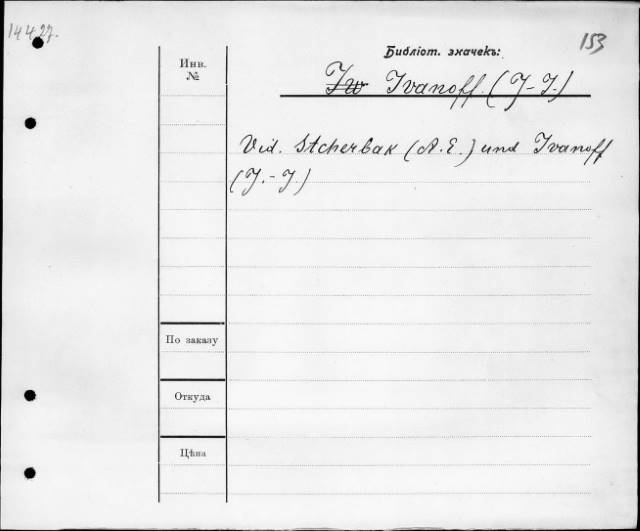 14427.
153
Библіот. значекъ:
Инв.
№
Iw Ivanoff. (J-J.)
Vid. Stcherbak (A. E.) und Ivanoff
(J.-J.)
По заказу
Откуда
Цѣна